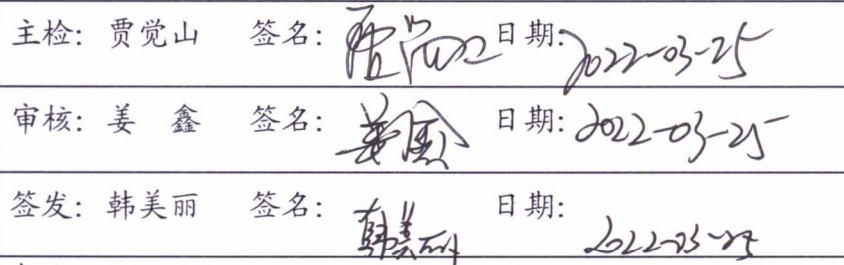 主检：贾觉山 签名：贾觉山 日期：2022-03-25
审核：姜 鑫 签名：姜鑫 日期：2022-03-25
签发：韩美丽 签名：韩美丽 日期：2022-03-25